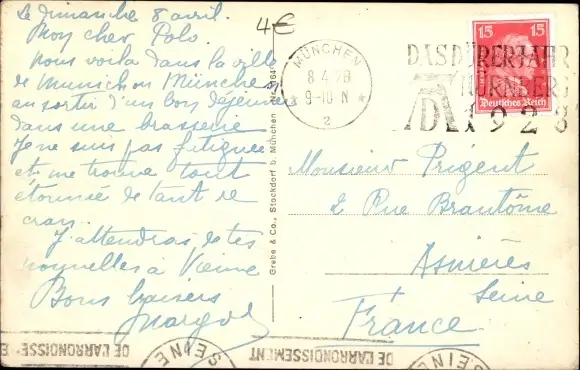 Le dimanche 8 avril.
Mon cher Polo
Nous voilà dans la ville
de Munich ou München
au sortir d'un bon déjeuner
dans une brasserie
Je ne suis pas fatiguée
et me trouve tout
étonnée de tant de
J'attendrai de tes
nouvelles à Vienne
Bons baisers
Margot
4€
Grebe & Co., Stockdorf b. München
MÜNCHEN
8 4 28
9-10 N
2
DAS DÜRERJAHR
NÜRNBERG
1928
15 15
Deutsches Reich
Monsieur Prigent
2 Rue Brantôme
Asnières
Seine
France
DE L'ARRONDISSEMENT
SEINE
DE L'ARRONDISSEMENT
SEINE